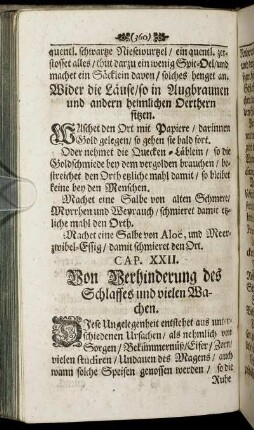 (360)
quentl. schwartze Niesewurzel / ein quentl. zer-
stosset alles / thut darzu ein wenig Spic-Oel / und
machet ein Säcklein davon / solches henget an.
Wider die Läuse / so in Augbraunen
und andern heimlichen Oerthern
sitzen.
WIschet den Ort mit Papiere / darinnen
Gold gelegen / so gehen sie bald fort.
Oder nehmet die Quecken-Läblein / so die
Goldschmiede bey dem vergolden brauchen / be-
streichet den Orth etzliche mahl damit / so bleibet
keine bey den Menschen.
Machet eine Salbe von alten Schmere /
Myrrhen und Weyrauch / schmieret damit etz-
liche mahl den Orth.
Machet eine Salbe von Aloë, und Meer-
zwibel-Essig / damit schmieret den Ort.
CAP. XXII.
Von Verhinderung des
Schlaffes und vielen Wa-
chen.
DIese Ungelegenheit entstehet aus unter-
schiedenen Ursachen / als nehmlich von
Sorgen / Bekümmernüß / Eifer / Zorn /
vielen studiren / Undauen des Magens / auch
wann solche Speisen genossen werden / so die
Ruhe